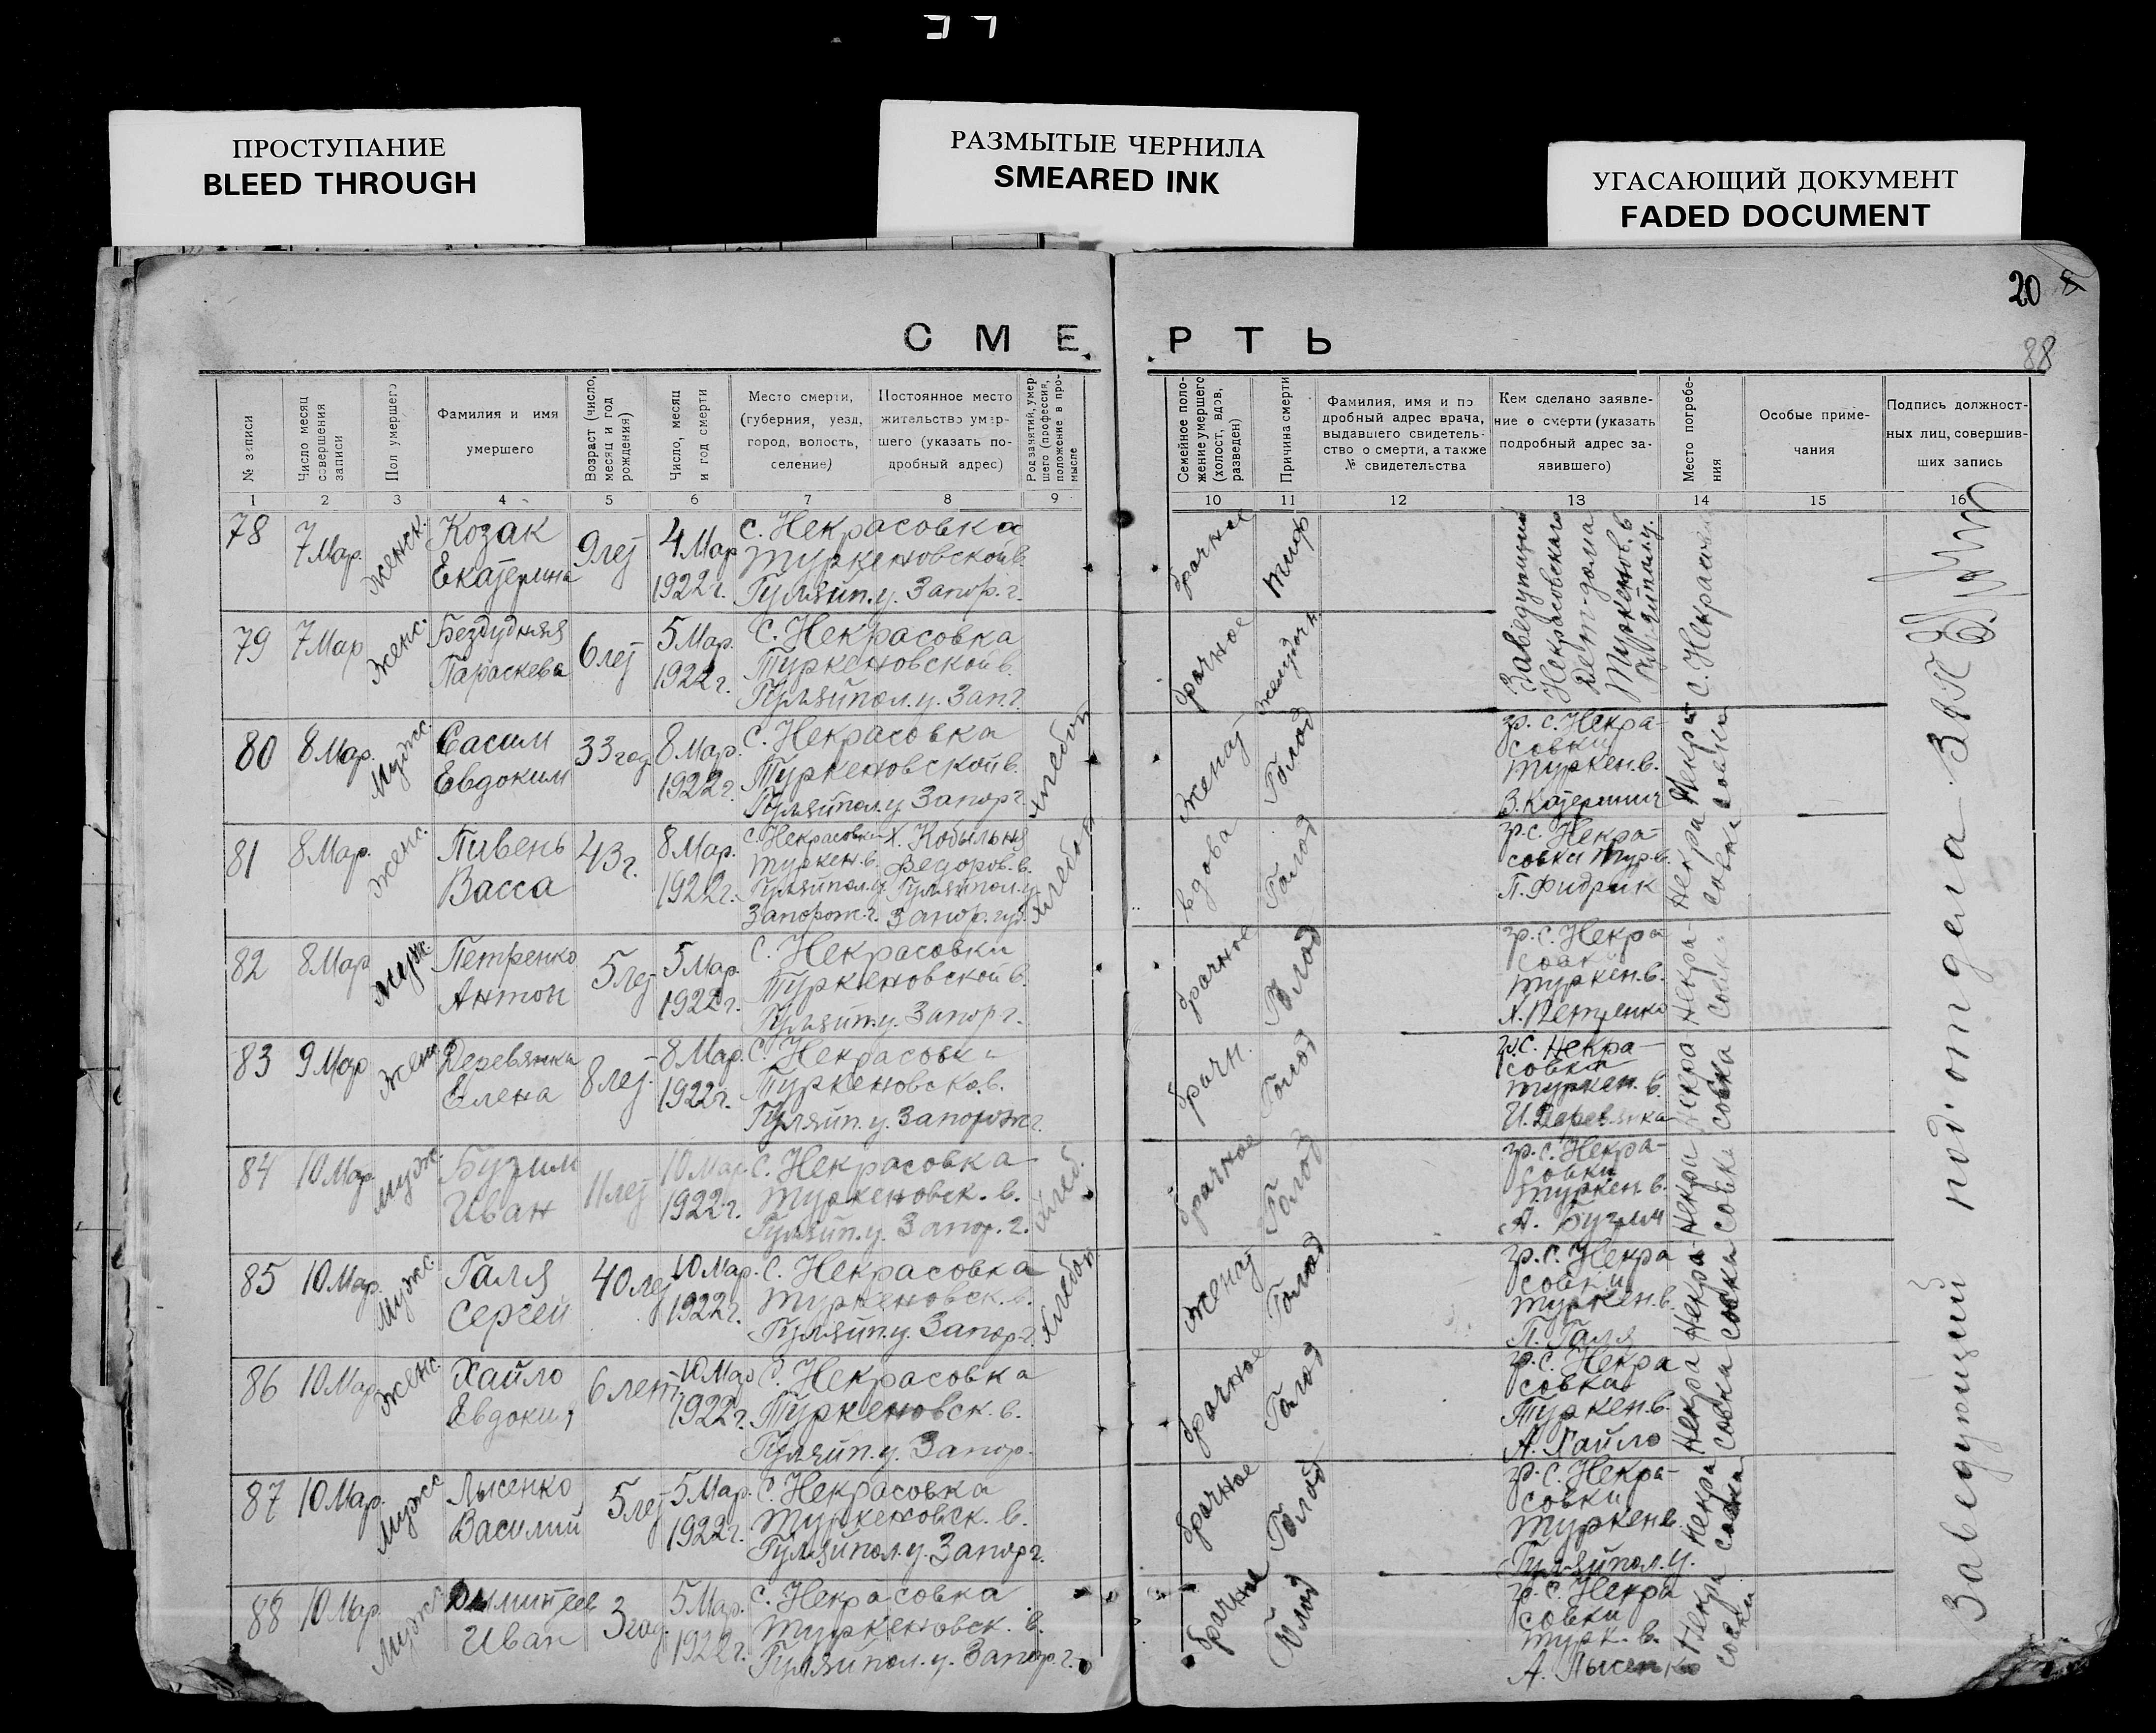 ПРОСТУПАНИЕ
BLEED THROUGH
РАЗМЫТЫЕ ЧЕРНИЛА
SMEARED INK
УГАСАЮЩИЙ ДОКУМЕНТ
FADED DOCUMENT
20
88
СМЕРТЬ
№ записи
Число месяц
совершения
записи
Пол умершего
Фамилия и имя
умершего
Возраст (число,
месяц и год
рождения)
Число, месяц
и год смерти
Место смерти,
(губерния, уезд,
город, волость,
селение)
Постоянное место
жительство умер-
шего (указать по-
дробный адрес)
Род занятий, умер-
шего (профессия,
положение в про-
мысле
Семейное поло-
жение умершего
(холост, вдов,
разведен)
Причина смерти
Фамилия, имя и по
дробный адрес врача,
выдавшего свидетель-
ство о смерти, а также
№ свидетельства
Кем сделано заявле-
ние о смерти (указать
подробный адрес за-
явившего)
Место погребе-
ния
Особые приме-
чания
Подпись должност-
ных лиц, совершив-
ших запись
1 2 3 4 5 6 7 8 9 10 11 12 13 14 15 16
78
7 Мар.
Женск.
Козак
Екатерина
9 лет
4 Мар
1922 г.
с. Некрасовка
Туркеновской в.
Гуляйп. у. Запор. г.
брачное
Тиф
Заведущий
Некрасовскаго
Дет-дома
Туркенов. в
Гуляйпол. у.
с. Некрасовка
79
7 Мар
Женс.
Бездудняя
Параскева
6 лет
5 Мар.
1922 г.
с. Некрасовка
Туркеновской в.
Гуляйпол. у. Зап. г.
брачное
80
8 Мар.
Мужс.
Сасим
Евдоким
33 год
8 Мар.
1922 г.
с. Некрасовка
Туркеновской в.
Гуляйпол. у Запор г.
хлебоп
женат
Голод
гр. с. Некра-
совки
Туркен. в.
Некра
совка
81
8 Мар.
Женс.
Пивень
Васса
43 г.
8 Мар.
1922 г.
с. Некрасовка
Туркен. в.
Гуляйпол. у
Запорож. г.
Х. Кобыльня
Федоров. в.
Гуляйпол. у
Запор. губ.
хлебоп
вдова
Голод
гр. с. Некра-
совки Тур. в.
П. Фидрик
Некра
совка
82
8 Мар
Муж.
Петренко
Антон
5 лет
5 Мар.
1922 г.
с. Некрасовки
Туркеновской в.
Гуляйп. у. Запор г.
брачное
Голод
гр. с. Некра
Туркен. в.
Петренко
Некра-
совка
83
9 Мар
Жен
Деревянка
Елена
8 лет.
8 Мар.
1922 г.
с. Некрасовка
Туркеновско в.
Гуляйп. у. Запорож г.
брачн.
Голод
гр. с. Некра-
совки
Туркен. в.
И. Деревянка
Некра
совка
84
10 Мар
Мужс.
Бузим
Иван
11 лет
10 Мар.
1922 г.
с. Некрасовка
Туркеновск. в.
Гуляйп. у. Запор. г.
хлеб.
брачное
Голод
гр. с. Некра-
совки
Туркен в.
А. Бузим
Некра
совка
85
10 Мар.
Мужс.
Галя
Сергей
40 лет
10 Мар.
1922 г.
с. Некрасовка
Туркеновск. в.
Гуляйп. у. Запор. г.
хлебоп
женат
Голод
гр. с. Некра
совки
Туркен. в.
П. Галя
Некра-
совка
86
10 Мар
Женс.
Хайло
6 лет
10 Мар
1922 г.
с. Некрасовка
Туркеновск. в.
Гуляйп. у. Запор.
брачное
Голод
гр. с. Некра
совки
Туркен. в.
А. Хайло
Некра
совка
87
10 Мар.
Мужс
Лысенко
Василий
5 лет
5 Мар.
1922 г.
с. Некрасовка
Туркеновск. в.
Гуляйпол. у. Запор г.
брачное
Голод
гр. с. Некра-
совки
Туркен в.
Гуляйпол. у.
Некра
совка
88
10 Мар
Мужс
Иван
3 год.
5 Мар.
1922 г.
с. Некрасовка
Туркеновск. в.
Гуляйпол. у. Запор. г.
брачное
Голод
гр. с. Некра
совки
Турк. в.
А. Лысенко
Некра
совки
Заведующий подотдела ЗАГС